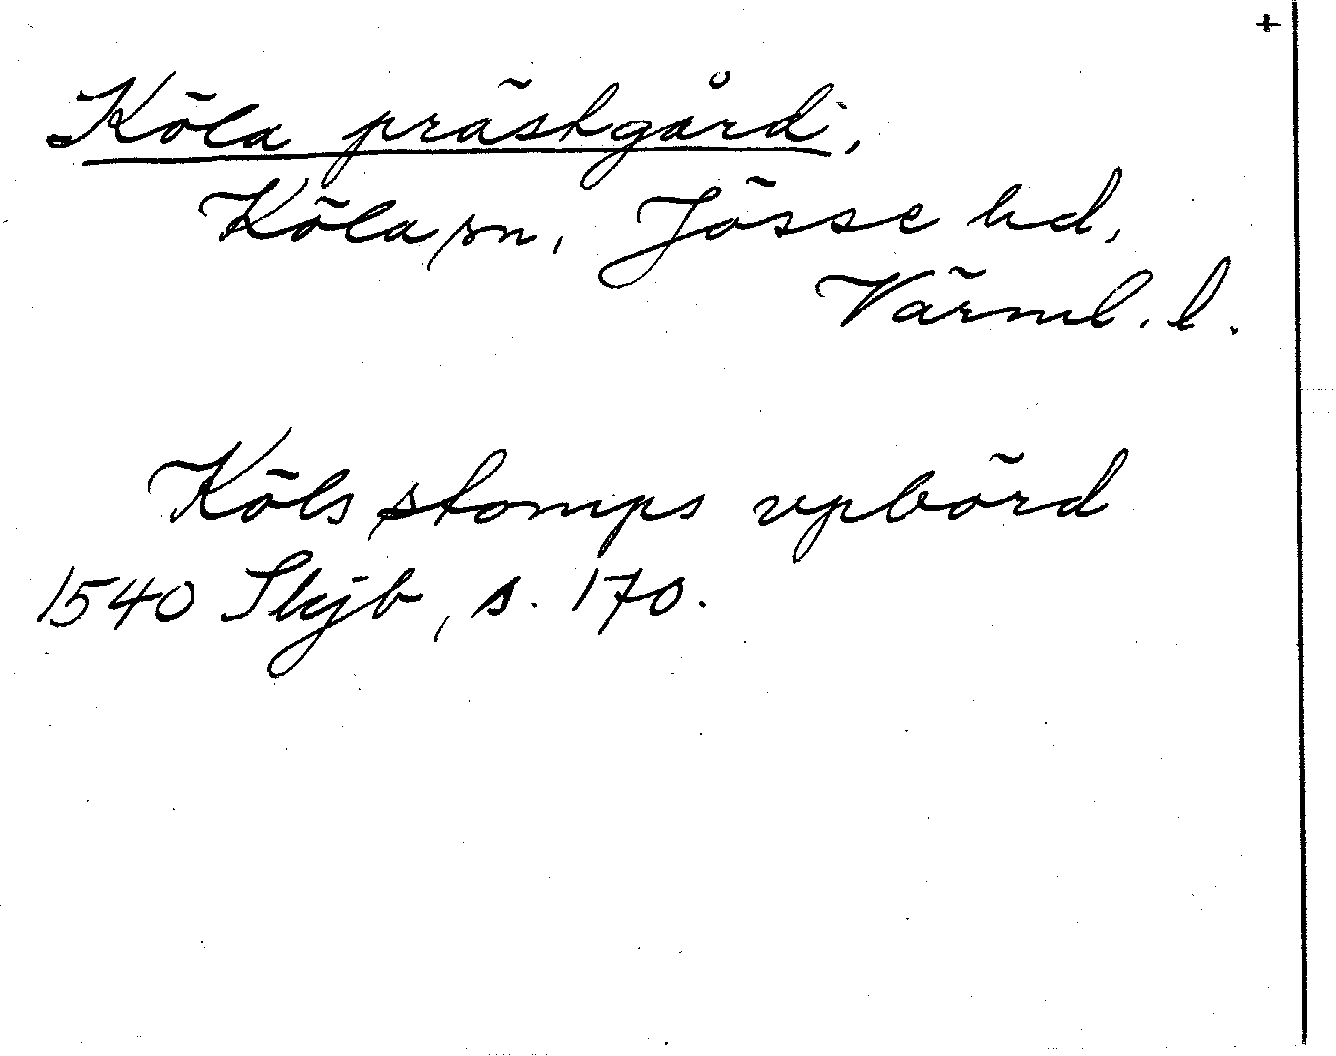 +
Köla prästgård,
Köla sn, Jösse hd,
Värml. l.
Köls stomps vpbörd
1540 Skjb, s. 170.